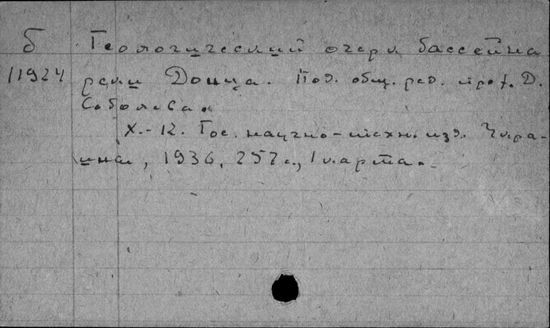 Б Геологический очерк бассейна
11924 реки Донца. Под. общ. ред. проф. Д.
Соболева.
Х.-К. Гос. научно-техн. изд. Укра-
ина, 1936, 252 с., 1 карта.